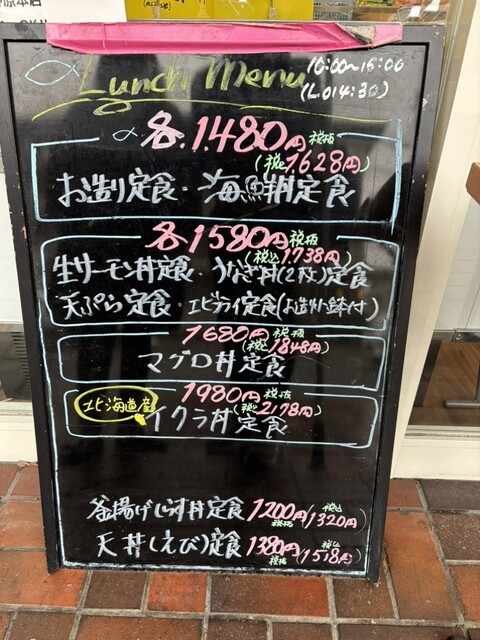 原本店
Lunch Menu
10:00~15:00
(L.O14:30)
各1480円税抜
(税込1,628円)
お造り定食・海鮮丼定食
各1580円税抜
(税込1,738円)
生サーモン丼定食・うなぎ丼(2枚)定食
天ぷら定食・エビフライ定食(お造り小鉢付)
1680円税抜
(税込1848円)
マグロ丼定食
1980円税抜
(税込2,178円)
北海道産
イクラ丼定食
釜揚げしらす丼定食1200円税抜(税込1320円)
天丼(えび)定食1380円税抜(税込1518円)